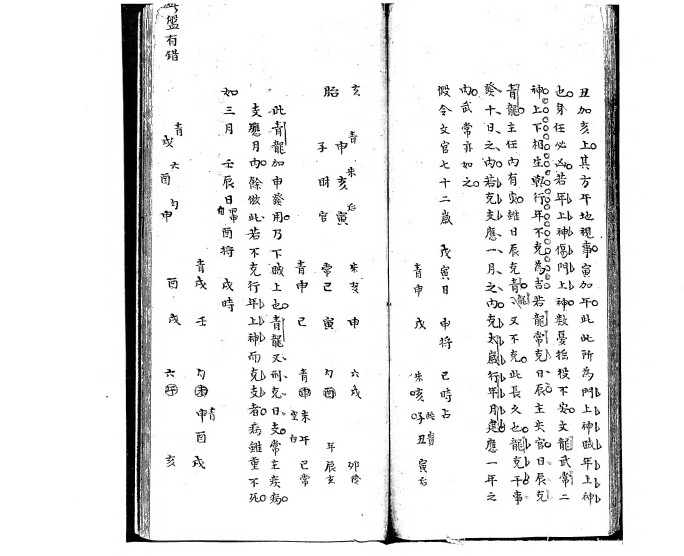 丑加亥上其方午地視事寅加午此此所為門上神賊年上神
也身任必凶若年上神傷門上神數憂搖役不安文龍武常二
神上下相生與行年不克為吉若龍常克日辰主失官日辰克
青龍主任內有災雖日辰克青龍又不克此長久也龍克干事
發十日之內若克支應一月之內克太歲行年月建應一年之
內武常亦如之
假令文官七十二歲 戊寅日 申將 巳時占
青申 戌 朱亥 子 丑 寅后
亥 青 朱 后 朱亥 申 六戌 卯陰
申亥寅 常巳 寅 勾酉 辰玄
胎 子財官 青申 巳 青申 未 午 巳常
此青龍加申發用乃下賊上也青龍又刑克日支常主疾病
支應月內餘倣此若不克行年上神而克支者病雖重不死
如三月 壬辰日 酉將 戌時
青戌 壬 勾未 申 酉 戌
青 六 勾
戌酉申 酉 戌 六 亥
盤有錯